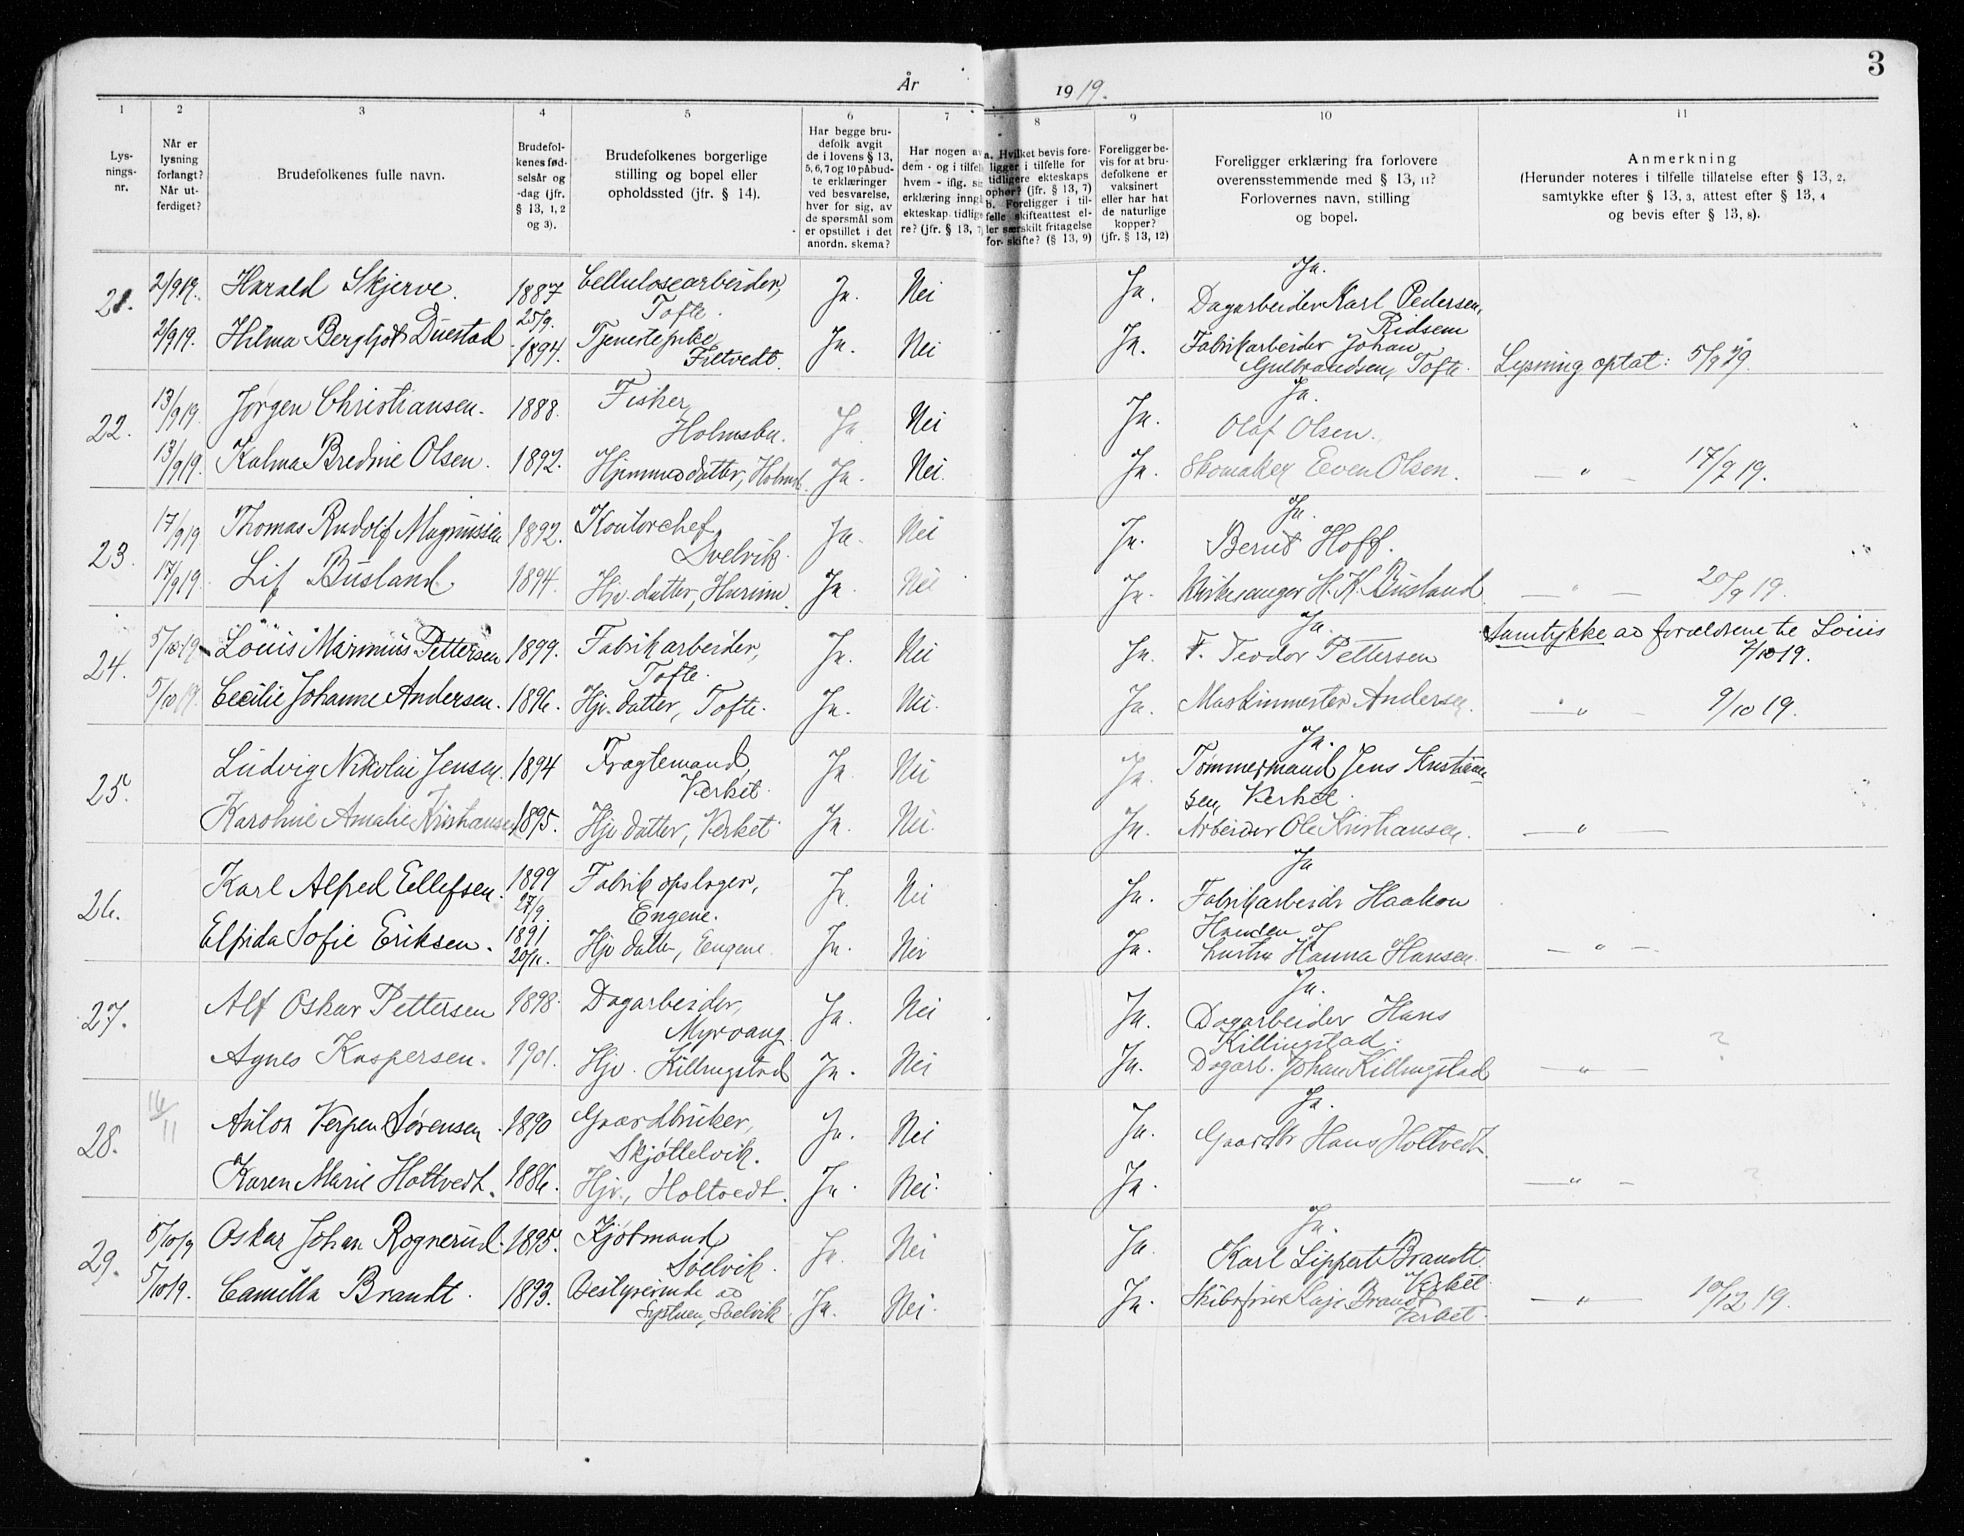 3
År 1919.
1 2 3 4 5 6 7 8 9 10 11
Lys-
nings-
nr.
Når er
lysning
forlangt?
Når ut-
ferdiget?
Brudefolkenes fulle navn.
Brudefol-
kenes fød-
selsår og
-dag (jfr.
§ 13, 1, 2
og 3).
Brudefolkenes borgerlige
stilling og bopel eller
opholdssted (jfr. § 14).
Har begge bru-
defolk avgit
de i lovens § 13,
5, 6, 7 og 10 påbud-
te erklæringer
ved besvarelse,
hver for sig, av
de spørsmål som
er opstillet i det
anordn. skema?
Har nogen av
dem - og i tilfelle
hvem - iflg. sin
erklæring inngått
ekteskap tidlige-
re? (jfr. § 13, 7)
a. Hvilket bevis fore-
ligger i tilfelle for
tidligere ekteskaps
ophør? (jfr. § 13, 7)
b. Foreligger i til-
felle skifteattest el-
ler særskilt fritagelse
for skifte? (§ 13, 9)
Foreligger be-
vis for at bru-
defolkene er
vaksinert
eller har hat
de naturlige
kopper?
(jfr. § 13, 12)
Foreligger erklæring fra forlovere
overensstemmende med § 13, 11?
Forlovernes navn, stilling
og bopel.
Anmerkning
(Herunder noteres i tilfelle tillatelse efter § 13, 2,
samtykke efter § 13, 3, attest efter § 13, 4
og bevis efter § 13, 8).
21. 2/9 19. Harald Skjerve. 1887 25/9. Cellulosearbeider, Tofte. Ja. Nei Ja. Ja. Dagarbeider Karl Pedersen,
2/9 19. Hilma Bergljot Duestad 1894. Tjenestepike, Ja. Nei Ja. Fabrikarbeider Johan
Gulbrandsen, Tofte. Lysning optat: 5/9 19.
22. 13/9 19. Jørgen Christiansen. 1888. Fisker, Holmsbu. Ja Nei Ja. Ja. Olaf Olsen.
13/9 19. Kalma Bredine Olsen. 1892. Hjemmedatter, Holmsb. Ja. Nei. Ja. Skomaker Even Olsen. — " — 17/9 19.
23. 17/9 19 Thomas Rudolf Magnussen 1892. Kontorchef, Svelvik. Ja. Nei Ja. Ja. Bernt Hoff.
17/9 19. Lif Busland 1894. Hjv. datter, Hurum. Ja. Nei Ja. Kirkesanger H. K. Busland — " — 20/9 19.
24. 5/10 19 Louis Marinius Pettersen 1899. Fabrikarbeider, Tofte. Ja. Nei Ja. Ja. F. Teodor Pettersen Samtykke av forældrene til Louis
7/10 19.
5/10 19. Cecilie Johanne Andersen. 1896. Hjv. datter, Tofte. Ja. Nei. Ja. Maskinmester Andersen. — " — 9/10 19.
25. Ludvig Nikolai Jensen. 1894 Fragtemand, Verket. Ja. Nei Ja. Ja. Tømmermand Jens Kristian-
sen, Verket
Karoline Amalie Kristiansen 1895. Hjv datter, Verket Ja. Nei. Ja. Arbeider Ole Kristiansen. — " —
26. Karl Alfred Ellefsen. 1899 27/9. Fabrikopslager, Engene. Ja. Nei Ja. Ja Fabrikarbeidr Haakon
Hansen og
Elfrida Sofie Eriksen. 1891 20/11. Hjv datter, Engene. Ja. Nei Ja. hustru Hanna Hansen. — " —
27. Alf Oskar Pettersen 1898. Dagarbeider, Myrvang. Ja. Nei Ja. Ja. Dagarbeider Hans
Killingstad.
Agnes Kaspersen. 1901. Hjv. Killingstad Ja. Nei Ja. Dagarb. Johan Killingstad — " — ?
28. 16/11 Anton Verpen Sørensen. 1890 Gaardbruker, Skjøttelvik. Ja. Nei Ja. Ja. Gaardbr Hans Holtvedt.
Karen Marie Holtvedt. 1886. Hjv., Holtvedt. Ja. Nei. Ja. — " — ?
29. 5/10 19 Oskar Johan Rognerud. 1895. Kjøbmand Svelvik. Ja. Nei Ja. Ja. Karl Lippert Brandt.
Verket.
5/10 19. Camilla Brandt. 1893. Bestyrerinde av
Systuen, Svelvik Ja. Nei. Ja. Skibsfører Brandt
Verket. — " — 10/12 19.